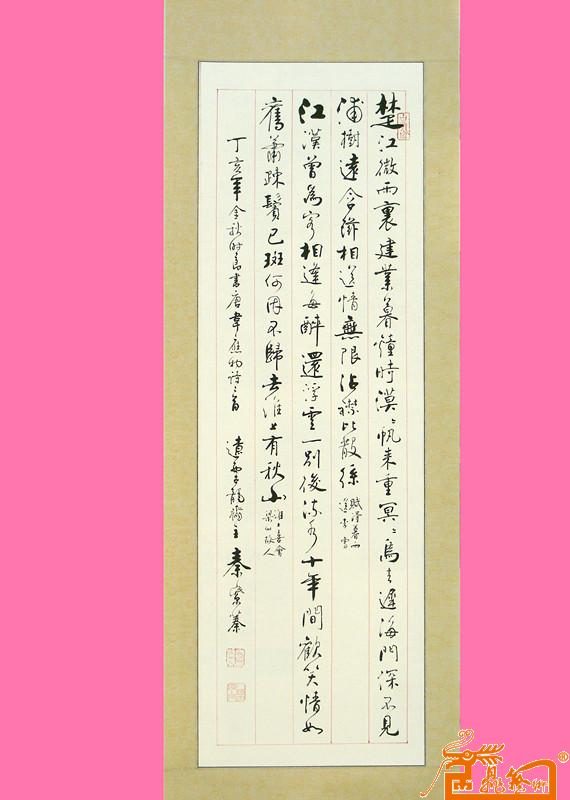 楚江微雨裏建業暮鐘時漠漠帆来重冥冥鳥去遲海門深不見
浦樹遠含滋相送情無限沾襟比散絲 賦得暮雨
送李冑
江漢曾為客相逢每醉還浮雲一別後流水十年間歡笑情如
舊蕭疎鬢已斑何因不歸去淮上有秋山 淮上喜會
梁川故人
丁亥年金秋時節書唐韋應物詩二首
龍 主 秦